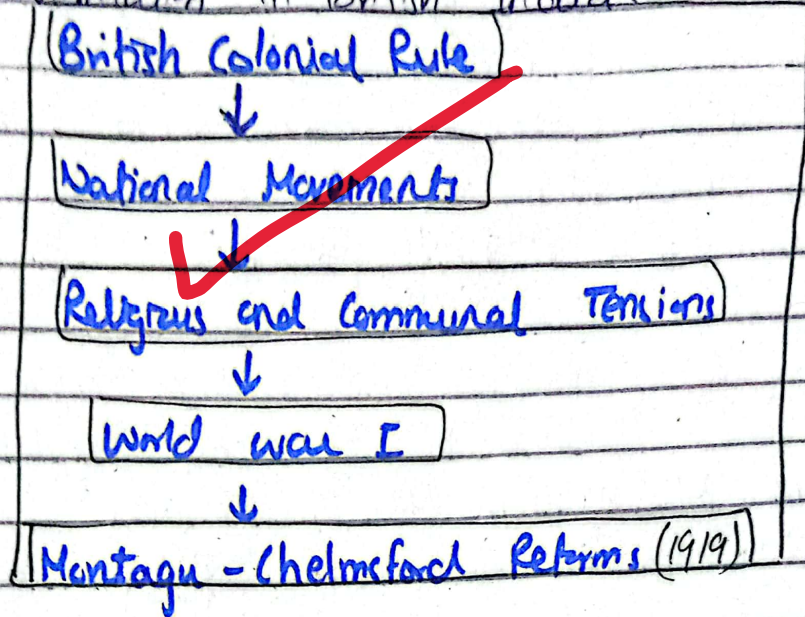 British Colonial Rule
↓
National Movements
↓
Religious and Communal Tensions
↓
World War I
↓
Montagu - Chelmsford Reforms (1919)